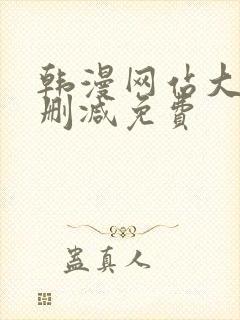 韩漫网站大
删减免费
蛊真人